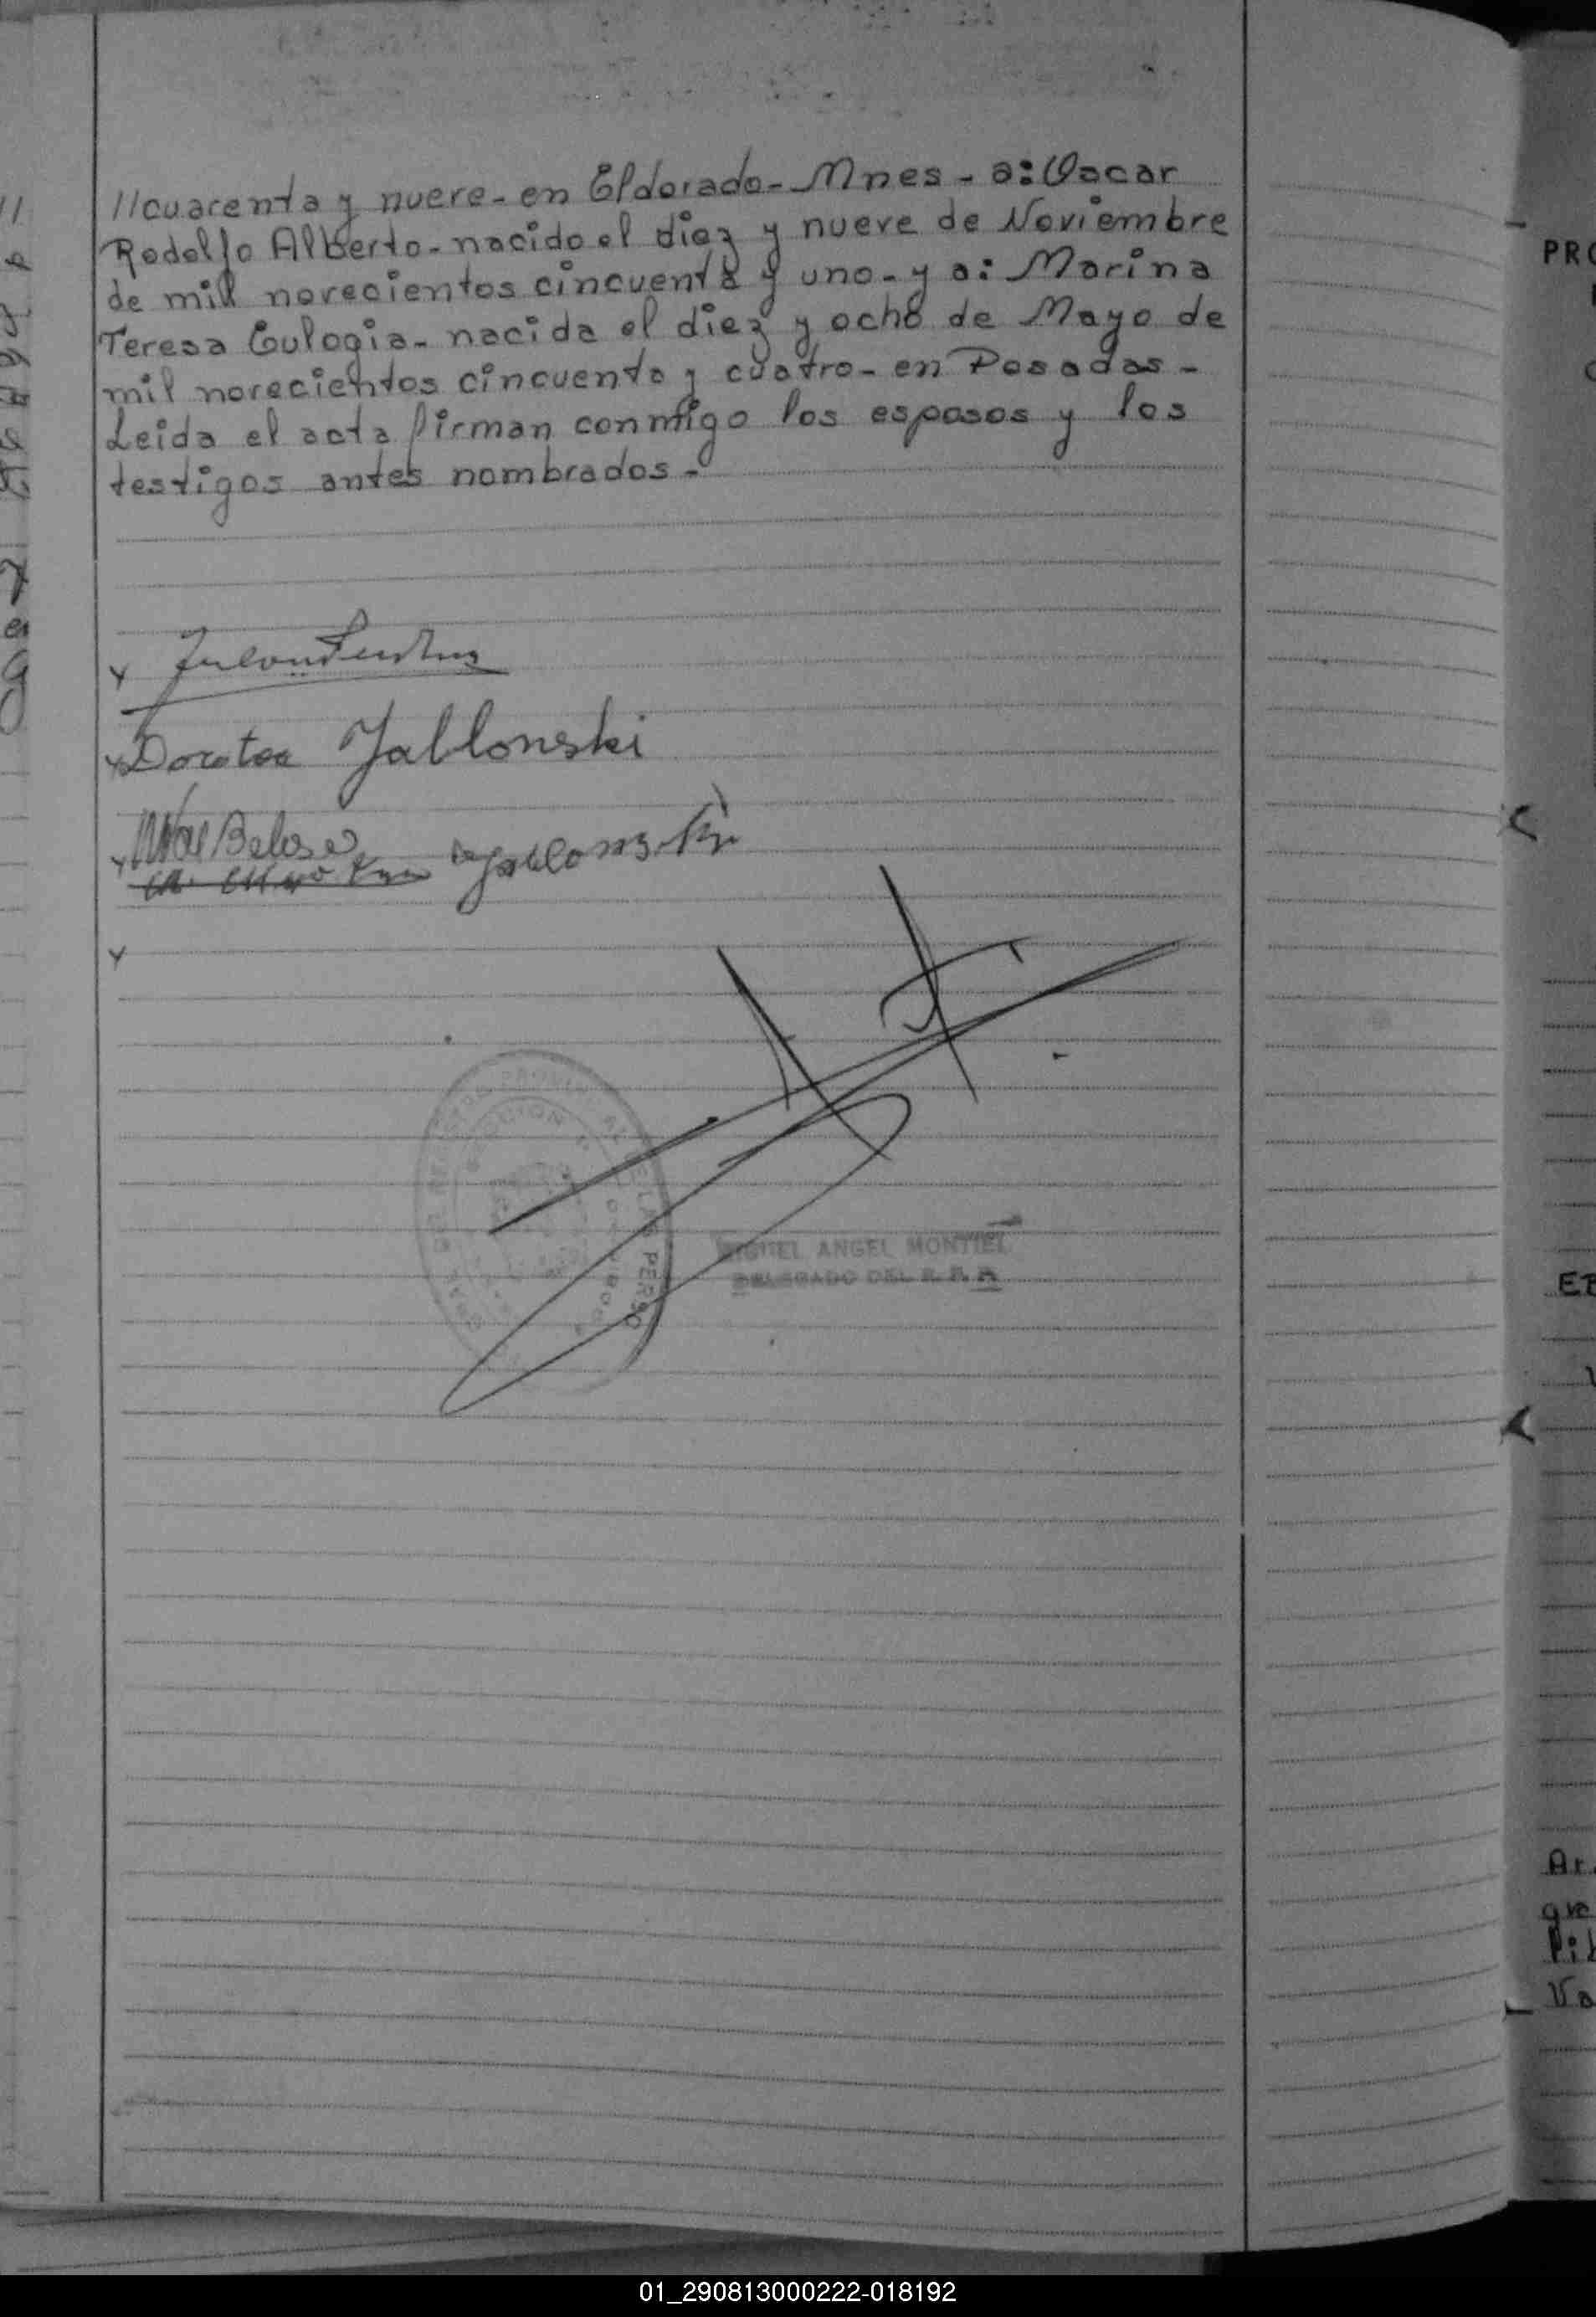 //cuarenta y nueve - en Eldorado - Mnes - a: Oscar
Rodolfo Alberto - nacido el diez y nueve de Noviembre
de mil novecientos cincuenta y uno - y a: Marina
Teresa Eulogia - nacida el diez y ocho de Mayo de
mil novecientos cincuenta y cuatro - en Posadas -
Leida el acta firman conmigo los esposos y los
testigos antes nombrados -
Dorotea Jablonski
MIGUEL ANGEL MONTIEL
DELEGADO DEL R. P.
DE LAS PERSO
01_290813000222-018192